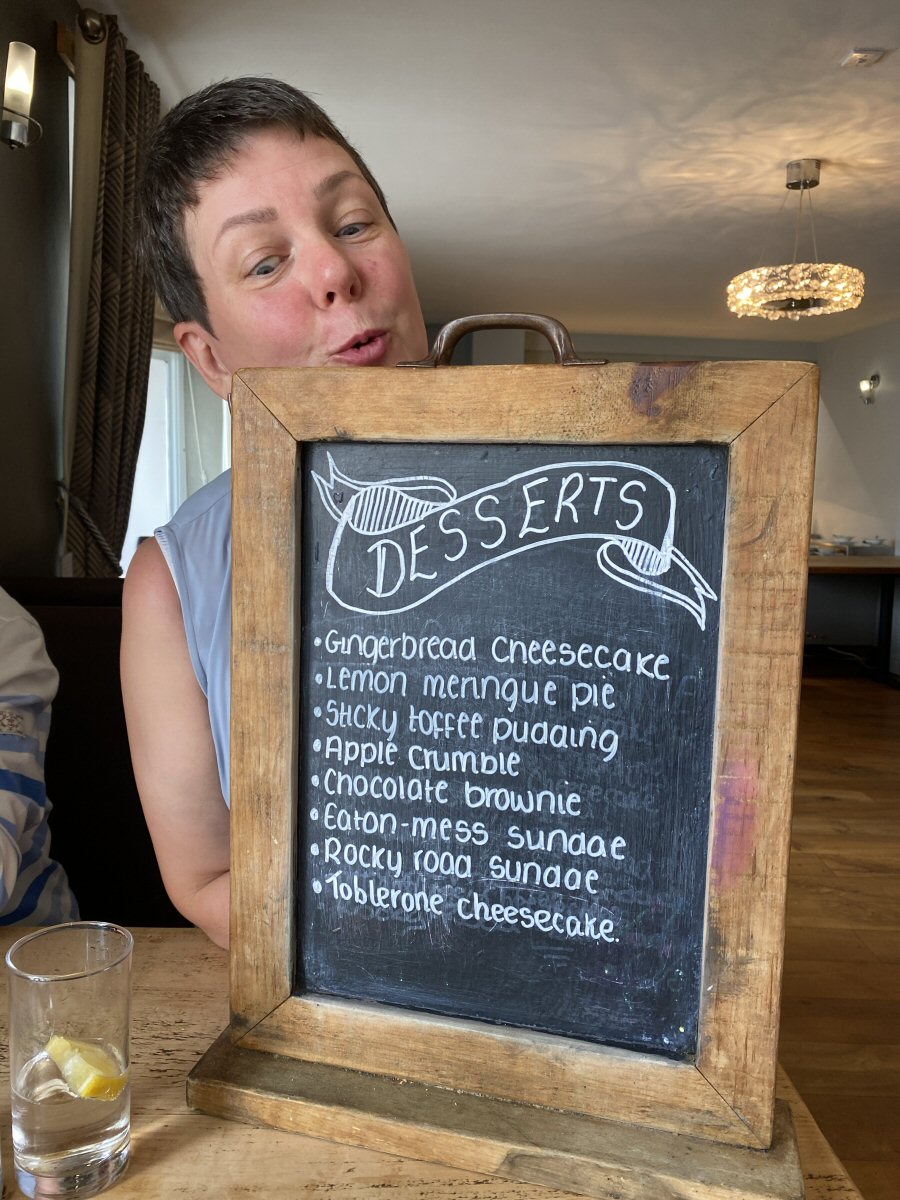 DESSERTS
• Gingerbread Cheesecake
• Lemon meringue pie
• Sticky toffee pudding
• Apple Crumble
• Chocolate brownie
• Eaton-mess sundae
• Rocky road sundae
• Toblerone cheesecake.